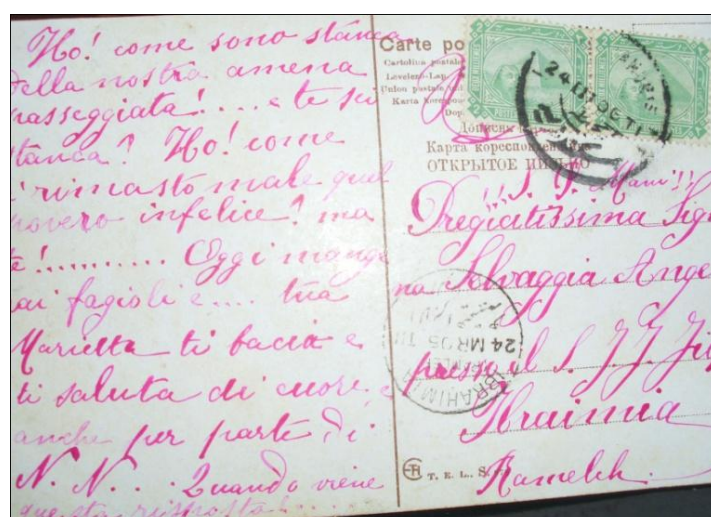 Ho! come sono stanca
della nostra amena
passeggiata! .... e te sei
stanca? Ho! come
è rimasto male quel
povero infelice! ma
te! .......... Oggi mange
rai fagioli e .... tua
Marietta ti bacia e
ti saluta di cuore, e
anche per parte di
N. N. .. Quando viene
questa risposta!
Carte po
Cartolina postale
Levelezo-Lap
Union postale
Karta
Dop
Дописн
Карта корреспонден
ОТКРЫТОЕ ПИСЬМО
24 III 06 T1
Pregiatissima Sig
na Selvaggia Ange
presso il S. J J
Ibraimia
Ramleh.
IBRAHIMI
24 MR 05 T
T. E. L. S.